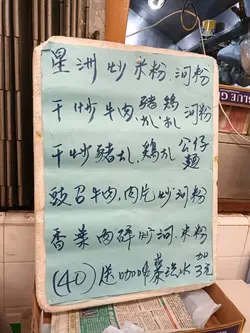 星洲炒米粉.河粉
干炒牛肉.豬扒.鷄扒.河粉
干炒豬扒.鷄扒公仔麵
豉召牛肉.肉片炒河粉
香菜肉碎炒河.米粉
(40)送咖啡.
BLUE G